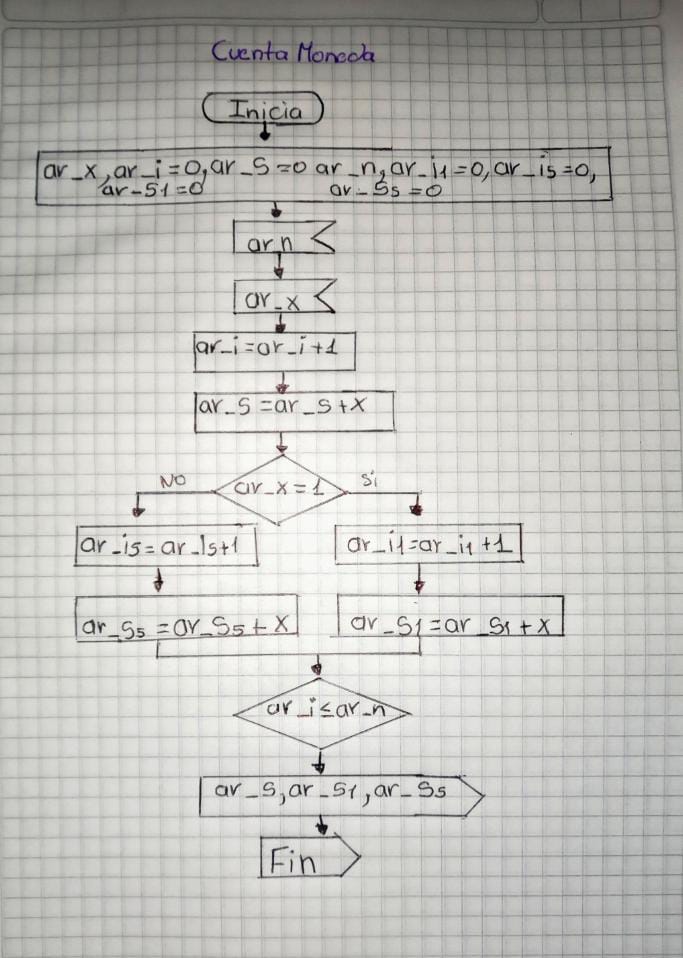 Cuenta Moneda
Inicia
ar_x, ar_i=0, ar_S=0 ar_n, ar_i1=0, ar_i5=0,
ar-S1=0 ar-S5=0
ar_n
ar_x
ar_i=ar_i+1
ar_S=ar_S+X
ar_x=1
NO Sí
ar_i5=ar_i5+1 ar_i1=ar_i1+1
ar_S5=ar_S5+X ar_S1=ar_S1+X
ar_i≤ar_n
ar_S, ar_S1, ar_S5
Fin